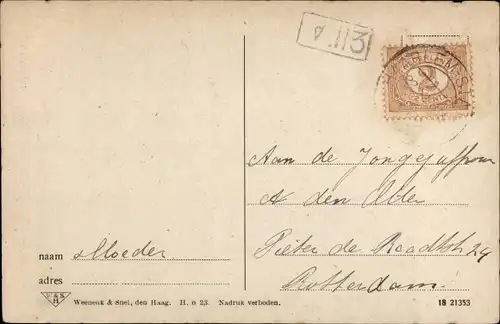 113
Aan de Jongejuffrouw
A den Older
Pieter de Hoochstr 24
Rotterdam
naam Moeder
adres
W&S
H
Weenenk & Snel, den Haag. H. o 23. Nadruk verboden.
18 21353